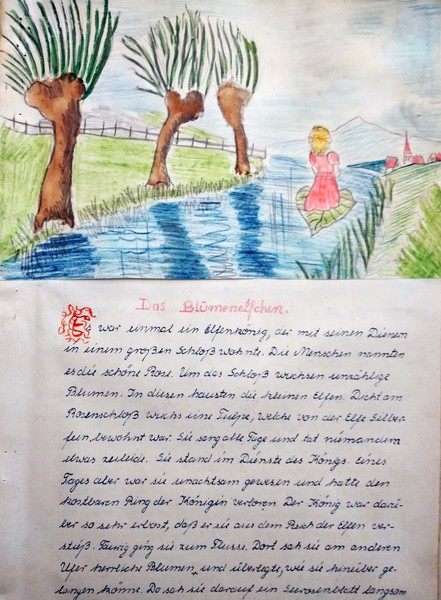 Das Blümenelfchen.
Es war einmal ein Elfenkönig, der mit seinen Dienern
in einem großen Schloß wohnte. Die Menschen nannten
es die schöne Rose. Um das Schloß wuchsen unzählige
Blumen. In diesen hausten die kleinen Elfen. Dicht am
Rosenschloß wuchs eine Tulpe, welche von der Elfe Silber-
fein bewohnt war. Sie sang alle Tage und tat niemandem
etwas zuleide. Sie stand im Dienste des Königs. Eines
Tages aber war sie unachtsam gewesen und hatte den
kostbaren Ring der Königin verloren. Der König war darü-
ber so sehr erbost, daß er sie aus dem Reich der Elfen ver-
stieß. Traurig ging sie zum Flusse. Dort sah sie am anderen
Ufer herrliche Blumen und überlegte, wie sie hinüber ge-
langen könne. Da sah sie darauf ein Seerosenblatt langsam